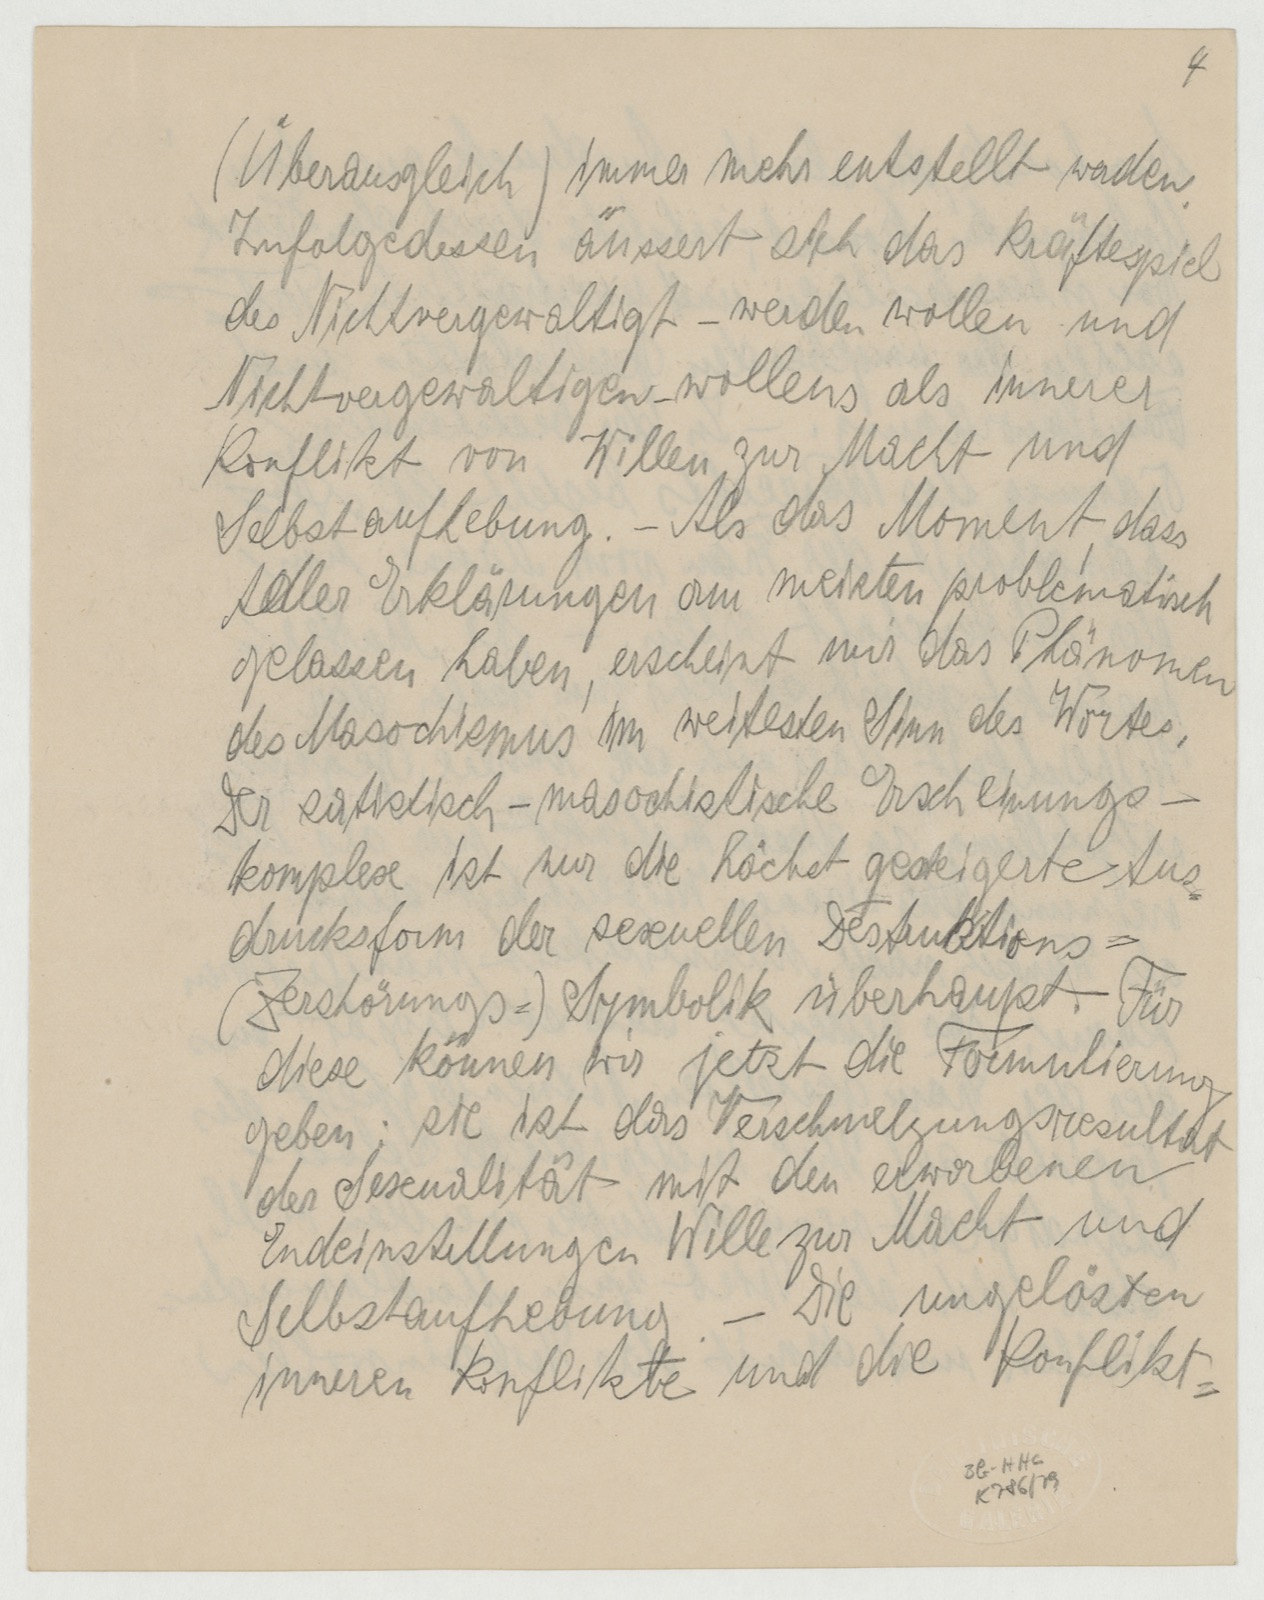 4
(Überausgleich) immer mehr entstellt werden.
Infolgedessen äussert sich das Kräftespiel
des Nichtvergewaltigt-werden wollen und
Nichtvergewaltigen-wollens als innerer
Konflikt von Willen zur Macht und
Selbstaufhebung. – Als das Moment, dass
Adler Erklärungen am meisten problematisch
gelassen haben, erscheint mir das Phänomen
des Masochismus im weitesten Sinn des Wortes.
Der satistisch-masochistische Erscheinungs-
komplex ist nur die höchst gesteigerte Aus=
drucksform der sexuellen Destruktions=
(Zerstörungs=) Symbolik überhaupt. – Für
diese können wir jetzt die Formulierung
geben: sie ist das Verschmelzungsresultat
der Sexualität mit den erworbenen
Endeinstellungen Wille zur Macht und
Selbstaufhebung. – Die ungelösten
inneren Konflikte und die Konflikt=
K786/79